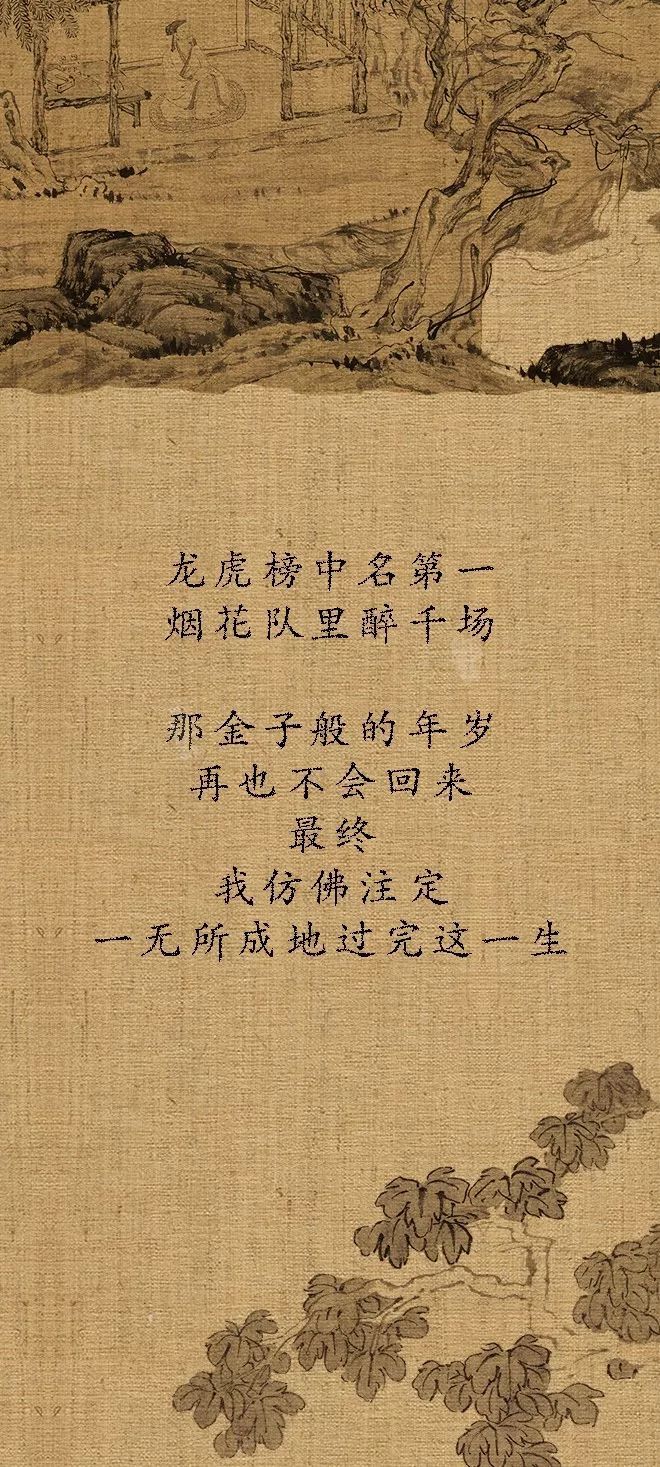 龙虎榜中名第一
烟花队里醉千场
那金子般的年岁
再也不会回来
最终
我仿佛注定
一无所成地过完这一生